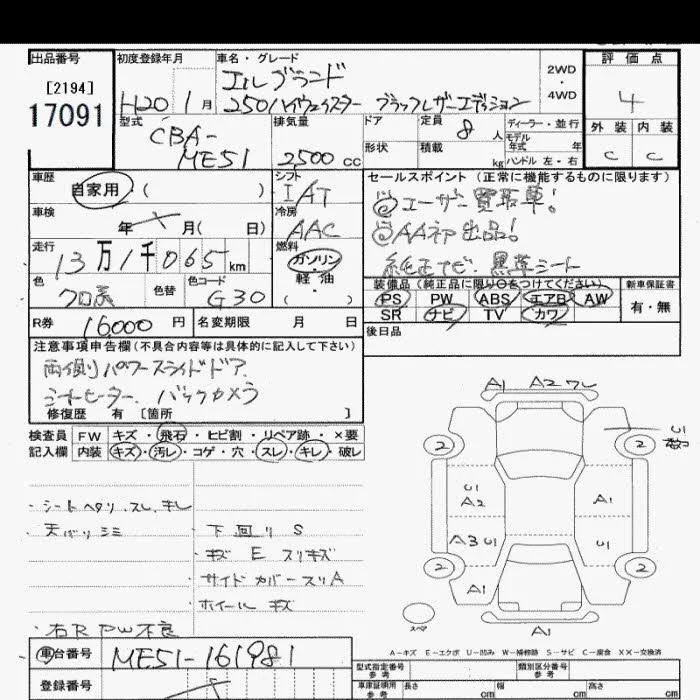 出品番号
[2194]
17091
初度登録年月
H20 1月
車名・グレード
エルグランド
250ハイウェイスター ブラックレザーエディション
2WD
・
4WD
評価点
4
外装 内装
C C
型式
CBA-
ME51
排気量
2500 CC
ドア
形状
定員 8人
積載 kg
ディーラー・並行
モデル
年式 年
ハンドル 左・右
車歴
自家用・( )
シフト
IAT
車検
年 月( 日)
冷房
AAC
走行
13万1千065km
燃料
ガソリン・
軽油
・( )
色
クロ系
色替
色コード
G30
セールスポイント (正常に機能するものに限ります)
◎ユーザー買取車!
◎AA初出品!
純正ナビ・黒革シート
装備品 (純正品に限り○をつけてください)
PS PW ABS エアB AW
SR ナビ TV カワ
新車保証書
有・無
R券 16000円
名変期限 月 日
後日品
注意事項申告欄(不具合内容等は具体的に記入して下さい)
両側パワースライドドア、
シートヒーター、バックカメラ
修復歴 有 [箇所 ]
検査員
記入欄
FW キズ・飛石・ヒビ割・リペア跡・×要
内装 キズ・汚レ・コゲ・穴・スレ・キレ・破レ
・シートヘタリ、スレ、キレ
・天バリ シミ
・下回り S
・キズ E スリキズ
・サイドカバースリA
・ホイール キズ
・右R PW不良
A1 A2 ワレ
U1
2 2
U1
A2
A1
A3 U1
U1
2 2
A1
スペア
A1
A-キズ E-エクボ U-凹み W-補修跡 S-サビ C-腐食 XX-交換済
車台番号 ME51-161981
登録番号
型式指定番号
参考
類別区分番号
参考
車庫証明用
参考
長さ cm
幅 cm
高さ cm